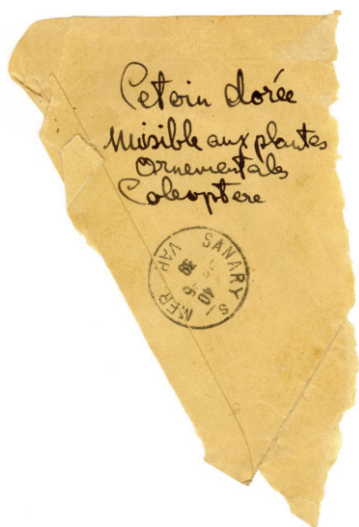 Cetoin dorée
Nuisible aux plantes
Ornementals
Coleoptere
SANARY S/ MER
VAR